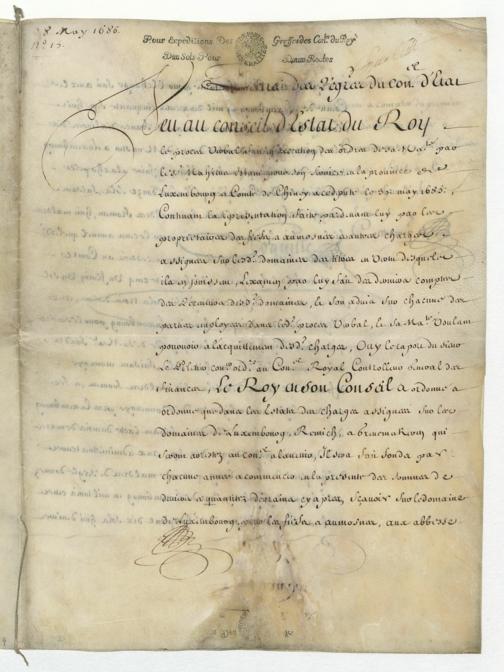 8 May 1686.
N.º 15.
Pour Expéditions Des Greffes des Con.ls du Roy
Deux Sols Pour Deux Roolles
Extrait des Reg.res du Con.el d'Etat
Veu au conseil d'Estat du Roy
le procez Verbal en execution des ordres de Sa Ma.té par
le S.r Mahieu Intendant en la province de
Luxembourg & Comté de Chiney du
Contenant la representation faite pardevant luy par les
proprietaires des fiefs & aumosnes & autres charges
assignez Sur lesd. domaines des titres en Vertu desquels
ils en jouissent, par luy fait des derniers comptes
des Receveurs desd. domaines, & Son advis Sur chacune des
parties employées dans led. procez Verbal, & Sa Ma.té Voulant
pourvoir à l'acquittement desd. charges, Ouy le raport du Sieur
le Peletier con.er ord.re au Con.el Royal Controlleur General des
finances, Le Roy en son Conseil a ordonné &
ordonne que dans les Estats des charges assignez Sur les
domaines de Luxembourg, Remich, & Grevemakeren qui
Seront arrestez au con.el à l'avenir, Il Sera fait fonds par
chacune année à commencer en la presente des Sommes de
deniers & quantitez de grains cy apres, Sçavoir Sur le domaine
de Luxembourg, pour les fiefs & aumosnes, aux abbesse